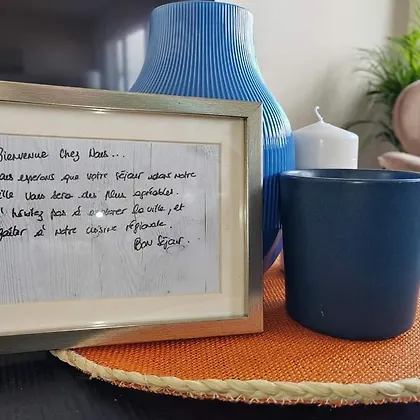 Bienvenue chez Nous...
Nous esperons que votre séjour dans notre
ville vous sera des plus agréables.
N'hésitez pas à explorer la ville, et
goûter à notre cuisine régionale.
Bon Séjour..